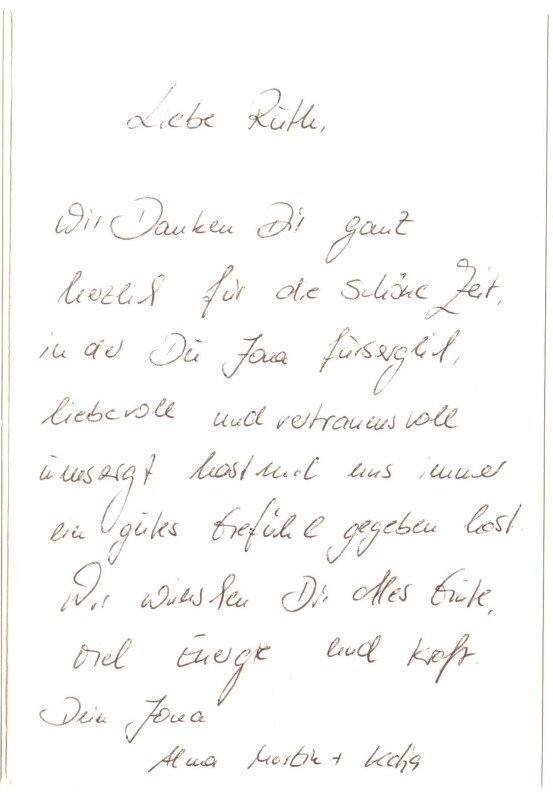 Liebe Ruth,
Wir Danken Dir ganz
herzlich für die schöne Zeit,
in der Du Jona fürsorglich,
liebevoll und vertrauensvoll
umsorgt hast und uns immer
ein gutes Gefühl gegeben hast.
Wir wünschen Dir alles Gute,
viel Energie und Kraft.
Dein Jona
Alma Martin + Katja